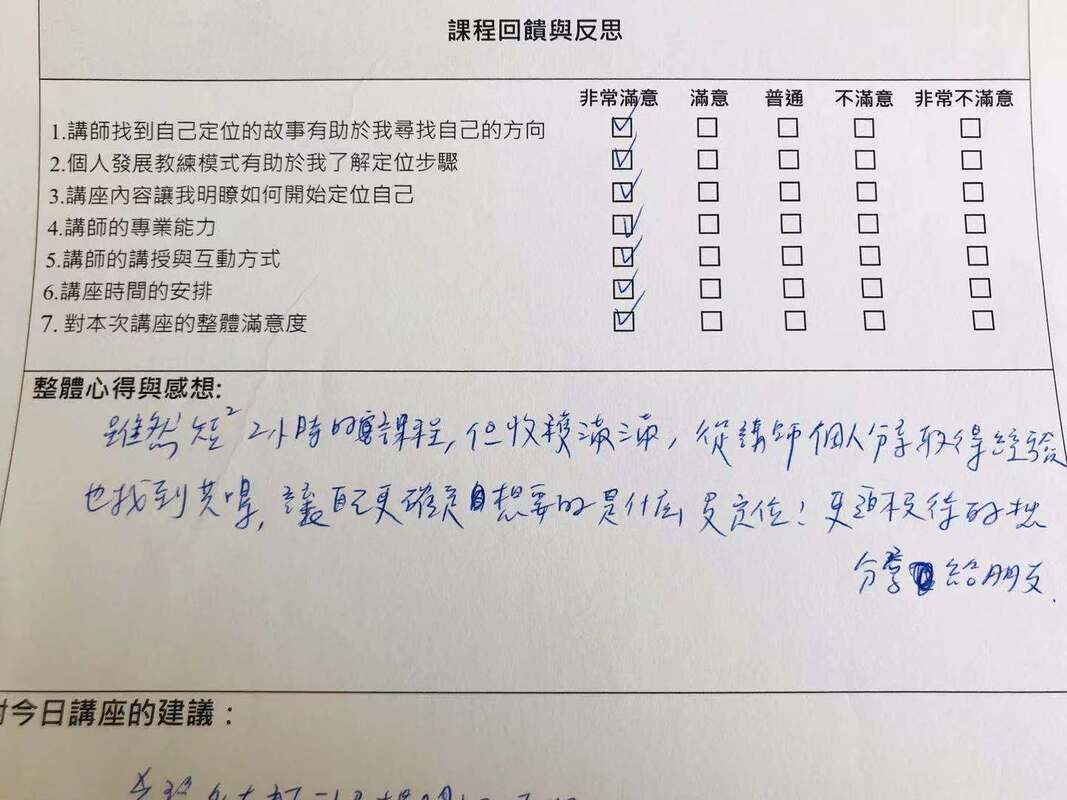 課程回饋與反思
非常滿意 滿意 普通 不滿意 非常不滿意
1.講師找到自己定位的故事有助於我尋找自己的方向
2.個人發展教練模式有助於我了解定位步驟
3.講座內容讓我明瞭如何開始定位自己
4.講師的專業能力
5.講師的講授與互動方式
6.講座時間的安排
7. 對本次講座的整體滿意度
整體心得與感想:
雖然短² 2小時的課程, 但收穫滿滿, 從講師個人分享取得經驗
也找到共鳴, 讓自己更確定自己想要的是什麼及定位! 更迫不及待的想
分享給朋友.
對今日講座的建議：